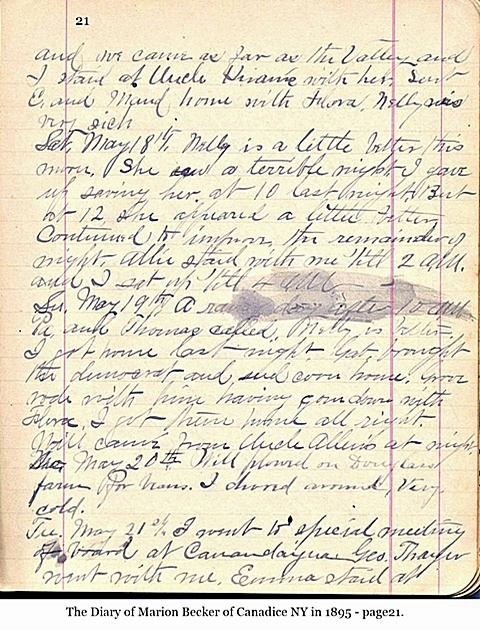 21
and we came as far as the Valley and
I staid at Uncle Duane with her. Sent
E, and Maud home with Flora, Nelly was
very sick
Sat, May 18th, Nelly is a little better this
morn. She had a terrible night I gave
up saving her, at 10 last night, But
at 12 she apeared a little better,
Continued to improve, the remainder of
night. Allie staid with me till 2 A.M.
and I sat up till 4 A.M.
Su. May 19th, A rainy day after 10 AM
Pa, and Thomas called, Nelly is better,
I got home last night Gut, brought
the democrat and seed corn home.
rode with him having gone down with
Flora, I got them home all right.
Will came from Uncle Allens at night.
May 20th Will plowed on Douglass
farm for beans. I chored around, Very
cold.
Tue. May 21st, I went to special meeting
of board at Canandaigua Geo. Thayer
went with me. Emma staid at
The Diary of Marion Becker of Canadice NY in 1895 - page21.